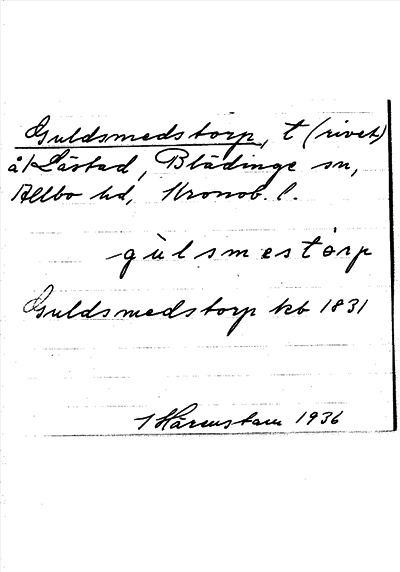 Guldsmedstorp, t (rivet)
å Låstad, Blädinge sn,
Allbo hd, Kronob. l.
gùlsmestòrp
Guldsmedstorp kb 1831
1936